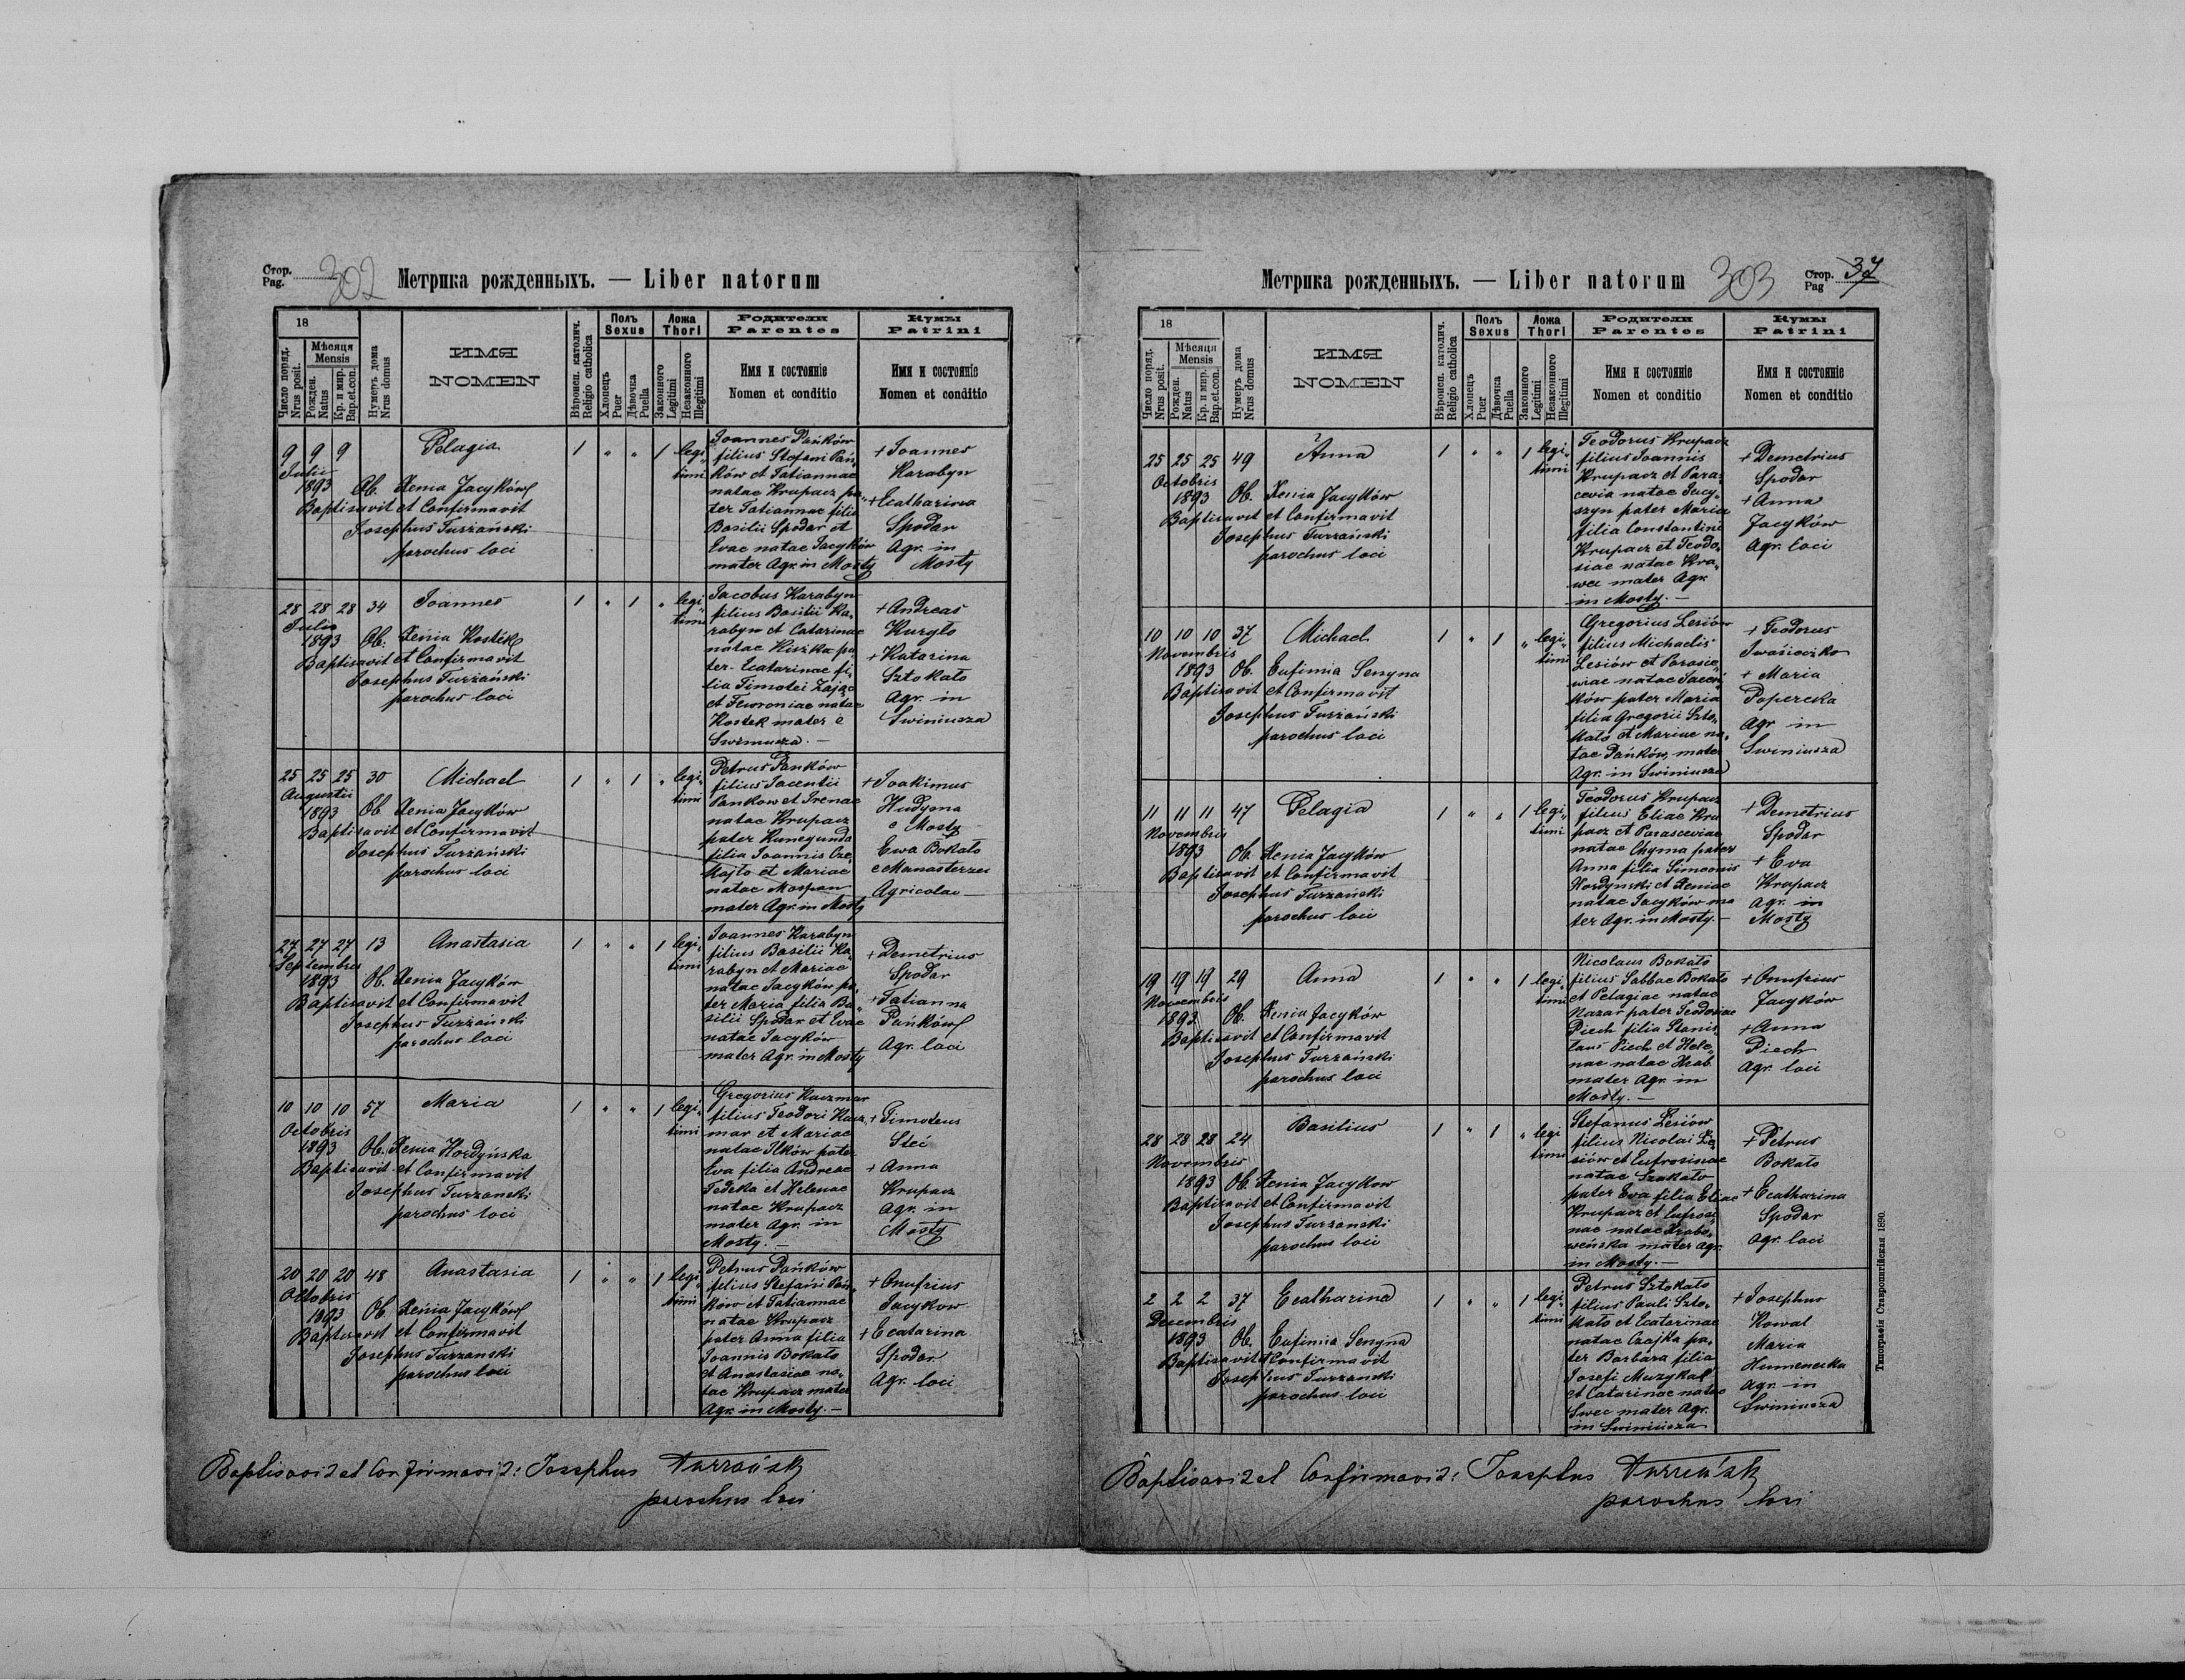 Стор.
Pag. 302
Метрика рожденныхъ. — Liber natorum
18
Число поряд.
Nrus posit.
Мѣсяця
Mensis
Рожден.
Natus
Кр. и мир.
Bap.et.con.
Нумеръ дома
Nrus domus
ИМЯ
NOMEN
Вѣроисп. католич.
Religio catholica
Полъ
Sexus
Хлопецъ
Puer
Дѣвочка
Puella
Ложа
Thori
Законного
Legitimi
Незаконного
Illegitimi
Родители
Parentes
Имя и состояніе
Nomen et conditio
Кумы
Patrini
Имя и состояніе
Nomen et conditio
9 9 9 Pelagia 1 " " 1 legi-
timi
Julii
1893 Ob. Xenia Jacyków
Baptisavit et Confirmavit
Josephus Turzański
parochus loci
Joannes Pańków
filius Stefani Pań-
ków et Tatiannae
natae Krupacz pa-
ter Tatiannae filia
Basilii Spodar et
Evae natae Jacyków
mater Agr. in Mosty
+ Joannes
Karabyn
+ Ecatharina
Spodar
Agr. in
Mosty
28 28 28 34 Joannes 1 " 1 " legi-
timi
Julii
1893 Ob. Xenia Kostek
Baptisavit et Confirmavit
Josephus Turzański
parochus loci
Jacobus Karabyn
filius Basilii Ka-
rabyn et Catarinae
natae Kiszka pa-
ter Ecatarinae fi-
lia Timotei Zając
et Fewroniae natae
Kostek mater e
Swiniusza. —
+ Andreas
Kuryło
+ Katarina
Sztokało
Agr. in
Swiniusza
25 25 25 30 Michael 1 " 1 " legi-
timi
Augustii
1893 Ob Xenia Jacyków
Baptisavit et Confirmavit
Josephus Turzański
parochus loci
Petrus Panków
filius Jacentii
Pankow et Irenae
natae Krupacz
pater Kunegunda
filia Joannis Cze-
kajło et Mariae
natae Mospan
mater Agr. in Mosty
+ Joakimus
Hudyma
e Mosty
Ewa Bokało
e Manasterzec
Agricolae
27 27 27 13 Anastasia 1 " " 1 legi-
timi
Septembris
1893 Ob. Xenia Jacyków
Baptisavit et Confirmavit
Josephus Turzański
parochus loci
Joannes Karabyn
filius Basilii Ka-
rabyn et Mariae
natae Jacyków pa-
ter Maria filia Ba-
silii Spodar et Evae
natae Jacyków
mater Agr. in Mosty
+ Demetrius
Spodar
+ Tatianna
Pańków
Agr. loci
10 10 10 57 Maria 1 " " 1 legi-
timi
Octobris
1893 Ob. Xenia Hordyńska
Baptisavit et Confirmavit
Josephus Turzanski
parochus loci
Gregorius Kaczmar
filius Teodori Kacz-
mar et Mariae
natae Ilków pater
Eva filia Andreae
Fedeka et Helenae
natae Krupacz
mater Agr. in
Mosty. —
+ Timoteus
Steć
+ Anna
Krupacz
Agr. in
Mosty
20 20 20 48 Anastasia 1 " " 1 legi-
timi
Octobris
1893 Ob. Xenia Jacyków
Baptisavit et Confirmavit
Josephus Turzanski
parochus loci
Petrus Pańków
filius Stefani Pań-
ków et Tatiannae
natae Krupacz
pater Anna filia
Joannis Bokało
et Anastasiae na-
tae Krupacz mater
Agr. in Mosty. —
+ Onufrius
Jacykow
+ Ecatarina
Spodar
Agr. loci
Baptisavit et Confirmavit: Josephus Turzański
parochus loci
Метрика рожденныхъ. — Liber natorum
303
Стор.
Pag 37
18
Число поряд.
Nrus posit.
Мѣсяця
Mensis
Рожден.
Natus
Кр. и мир.
Bap.et.con.
Нумеръ дома
Nrus domus
ИМЯ
NOMEN
Вѣроисп. католич.
Religio catholica
Полъ
Sexus
Хлопецъ
Puer
Дѣвочка
Puella
Ложа
Thori
Законного
Legitimi
Незаконного
Illegitimi
Родители
Parentes
Имя и состояніе
Nomen et conditio
Кумы
Patrini
Имя и состояніе
Nomen et conditio
25 25 25 49 Anna 1 " " 1 legi-
timi
Octobris
1893 Ob. Xenia Jacyków
Baptisavit et Confirmavit
Josephus Turzański
parochus loci
Teodorus Krupacz
filius Joannis
Krupacz et Para-
cevia natae Jacy-
szyn pater Maria
filia Constantini
Krupacz et Teodo-
siae natae Kra-
wec mater Agr.
in Mosty. —
+ Demetrius
Spodar
+ Anna
Jacyków
Agr. loci
10 10 10 37 Michael 1 " 1 " legi-
timi
Novembris
1893 Ob. Eufimia Senyna
Baptisavit et Confirmavit
Josephus Turzański
parochus loci
Gregorius Lesiów
filius Michaelis
Lesiów et Parasce-
wiae natae
ków pater Maria
filia Gregorii Szto-
kało et Mariae na-
tae Pańków, mater
Agr. in Swiniusza
+ Teodorus
Iwasieczko
+ Maria
Poperecka
Agr in
Swiniusza
11 11 11 47 Pelagia 1 " " 1 legi-
timi
Novembris
1893 Ob. Xenia Jacyków
Baptisavit et Confirmavit
Josephus Turzański
parochus loci
Teodorus Krupacz
filius Eliae Kru
pacz et Parasceviae
natae Chyma pater
Anna filia Simeonis
Hordynski et Xeniae
natae Jacyków ma
ter Agr. in Mosty. —
+ Demetrius
Spodar
+ Eva
Krupacz
Agr. in
Mosty
19 19 19 29 Anna 1 " " 1 legi-
timi
Novembris
1893 Ob. Xenia Jacyków
Baptisavit et Confirmavit
Josephus Turzański
parochus loci
Nicolaus Bokało
filius Sabbae Bokało
et Pelagiae natae
Nazar pater Teodosiae
Piech filia Stanis-
laus Piech et Hele-
nae natae Hrab
mater Agr. in
Mosty. —
+ Onufrius
Jacyków
+ Anna
Piech
Agr. loci
28 28 28 24 Basilius 1 " 1 " legi
timi
Novembris
1893 Ob. Xenia Jacykow
Baptisavit et Confirmavit
Josephus Turzanski
parochus loci
Stefanus Lesiów
filius Nicolai Le-
siów et Eufrosinae
natae Szokało
pater Eva filia Eliae
Krupacz et Eufrosi-
nae natae Hrabo-
weńska mater Agr.
in Mosty. —
+ Petrus
Bokało
+ Ecatharina
Spodar
Agr. loci
2 2 2 37 Ecatharina 1 " " 1 legi-
timi
Decembris
1893 Ob. Eufimia Senyna
Baptisavit et Confirmavit
Josephus Turzanski
parochus loci
Petrus Sztokało
filius Pauli Szto-
kało et Ecatarinae
natae Czajka pa-
ter Barbara filia
Josefi Muzyka
et Catarinae natae
Swec mater Agr.
in Swiniusza
+ Josephus
Kowal
Maria
Humenecka
Agr. in
Swiniusza
Baptisavit et Confirmavit: Josephus Turzański
parochus loci
Типографія Ставропигійская 1890.